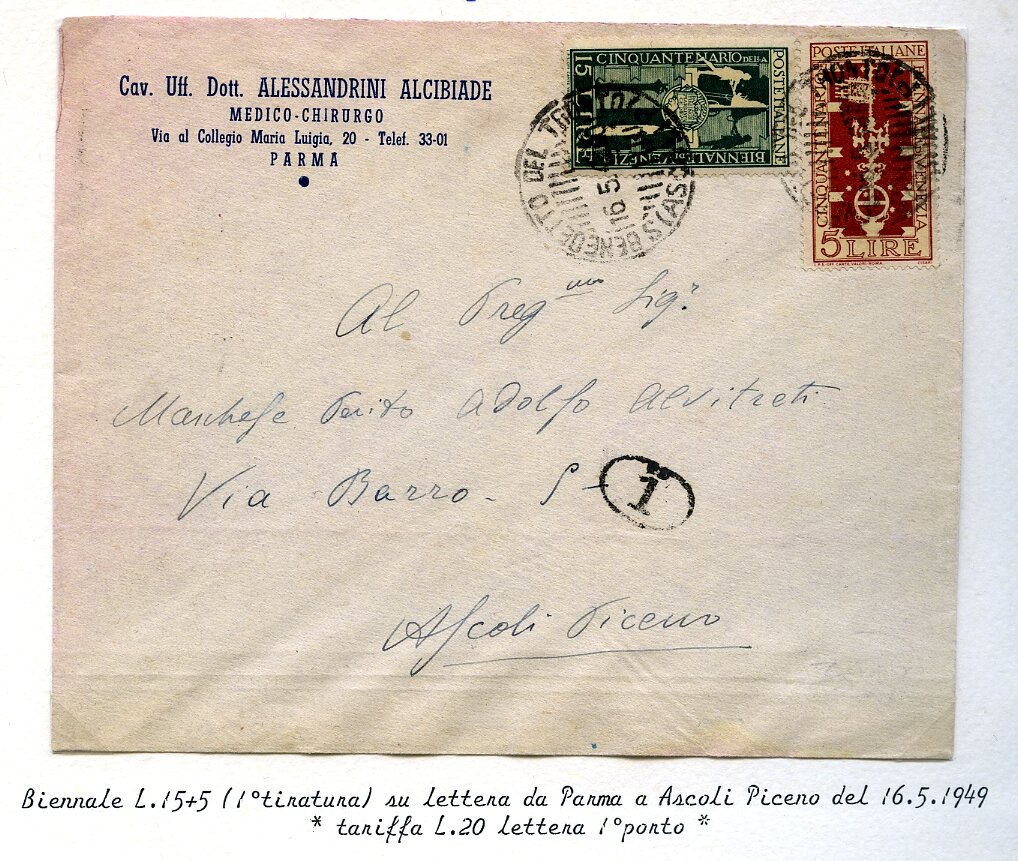 Cav. Uff. Dott. ALESSANDRINI ALCIBIADE
MEDICO-CHIRURGO
Via al Collegio Maria Luigia, 20 - Telef. 33-01
PARMA
CINQUANTENARIO DELLA
BIENNALE DI VENEZIA
POSTE ITALIANE
15 LIRE
POSTE ITALIANE
CINQUANTENARIO
BIENNALE VENEZIA
5 LIRE
S. BENEDETTO DEL TR
16 5
(ASC
Al Preg.mo Sig.r
Marchese Perito Adolfo Alvitreti
Via Barro - 5 -
1
Ascoli Piceno
Biennale L.15+5 (1°tiratura) su lettera da Parma a Ascoli Piceno del 16.5.1949
* tariffa L.20 lettera 1°porto *